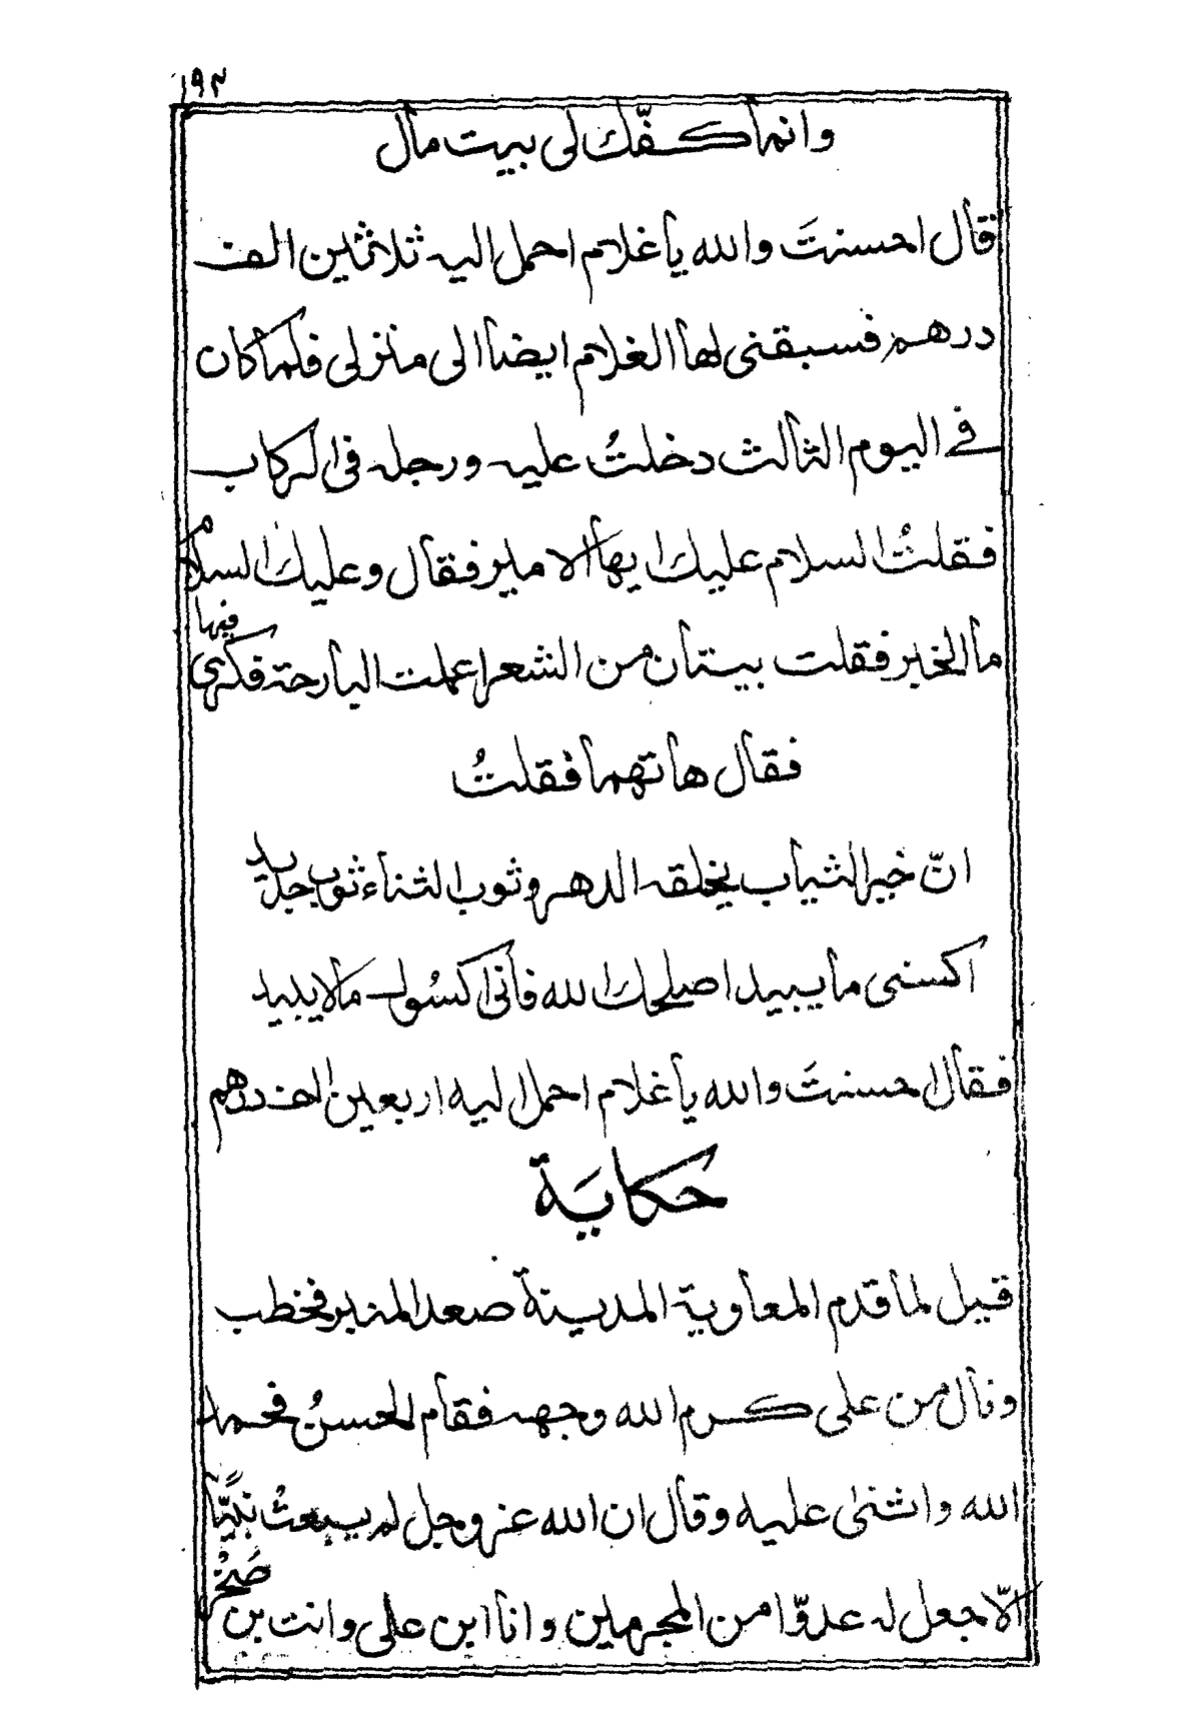 ١٩٣
وانما كفّك لى بيت مال
قال احسنتَ والله يا غلام احمل اليه ثلاثين الف
درهم فسبقنى لها الغلام ايضا الى منزلى فلما كان
فے اليوم الثالث دخلتُ عليه ورجله فى الركاب
فقلتُ السلام عليك ايها الامير فقال وعليك السلام
ما الخير فقلت بيتان من الشعر اعملت البارحة فكرى فيها
فقال هاتهما فقلتُ
انّ خير الثياب يخلقه الدهر وثوب الثناء ثوب جديد
اكسنى ما يبيد اصلحك الله فانى اكسُوك مالا يبيد
فقال احسنتَ والله يا غلام احمل اليه اربعين الف درهم
حكايَة
قيل لما قدم المعاوية المدينة صعد المنبر فخطب
ونال من على كرم الله وجهه فقام الحسنُ فحمد
الله واثنى عليه وقال ان الله عز وجل لم يبعثْ نبيًّا
الّا جعل له عدوّا من المجرمين وانا ابن على وانت بن صَخْر